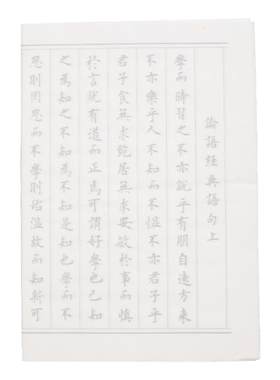 論語經典語句上
學而時習之不亦說乎有朋自遠方來
不亦樂乎人不知而不慍不亦君子乎
君子食無求飽居無求安敏於事而慎
於言就有道而正焉可謂好學也已知
之為知之不知為不知是知也學而不
思則罔思而不學則殆溫故而知新可